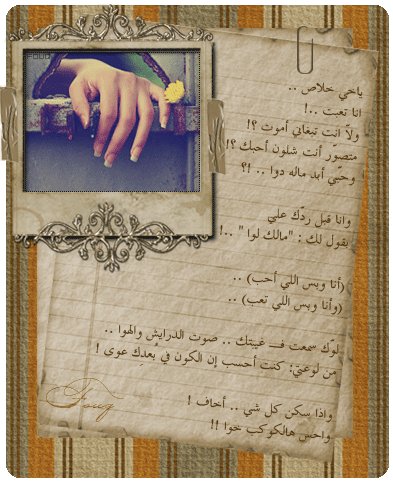 ياخي خلاص ..
انا تعبت ..!
ولا انت تبغاني أموت ؟!
متصوّر أنت شلون أحبك ؟!
وحبّي أبد ماله دوا .. !؟
وانا قبل ردّك علي
بقول لك : "مالك لوا " ..!
(أنا وبس اللي أحب) ..
(وأنا وبس اللي تعب) ..
لوّك سمعت فـ غيبتك .. صوت الدرايش والهوا ..
من لوعتي: كنت أحسب إن الكون في بُعدك عوى !
واذا سكن كل شي .. أخاف !
واحس هالكوكب خوا !!